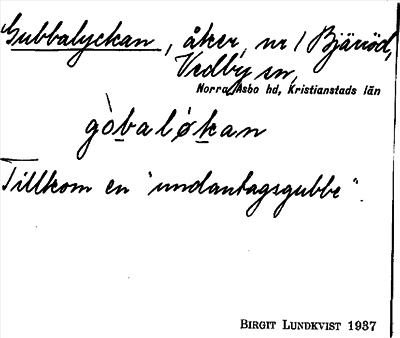 Gubbalyckan, åker, nr 1 Bjäröd,
Vedby sn,
Norra Åsbo hd, Kristianstads län
gòbaløkan
Tillkom en "undantagsgubbe".
BIRGIT LUNDKVIST 1937